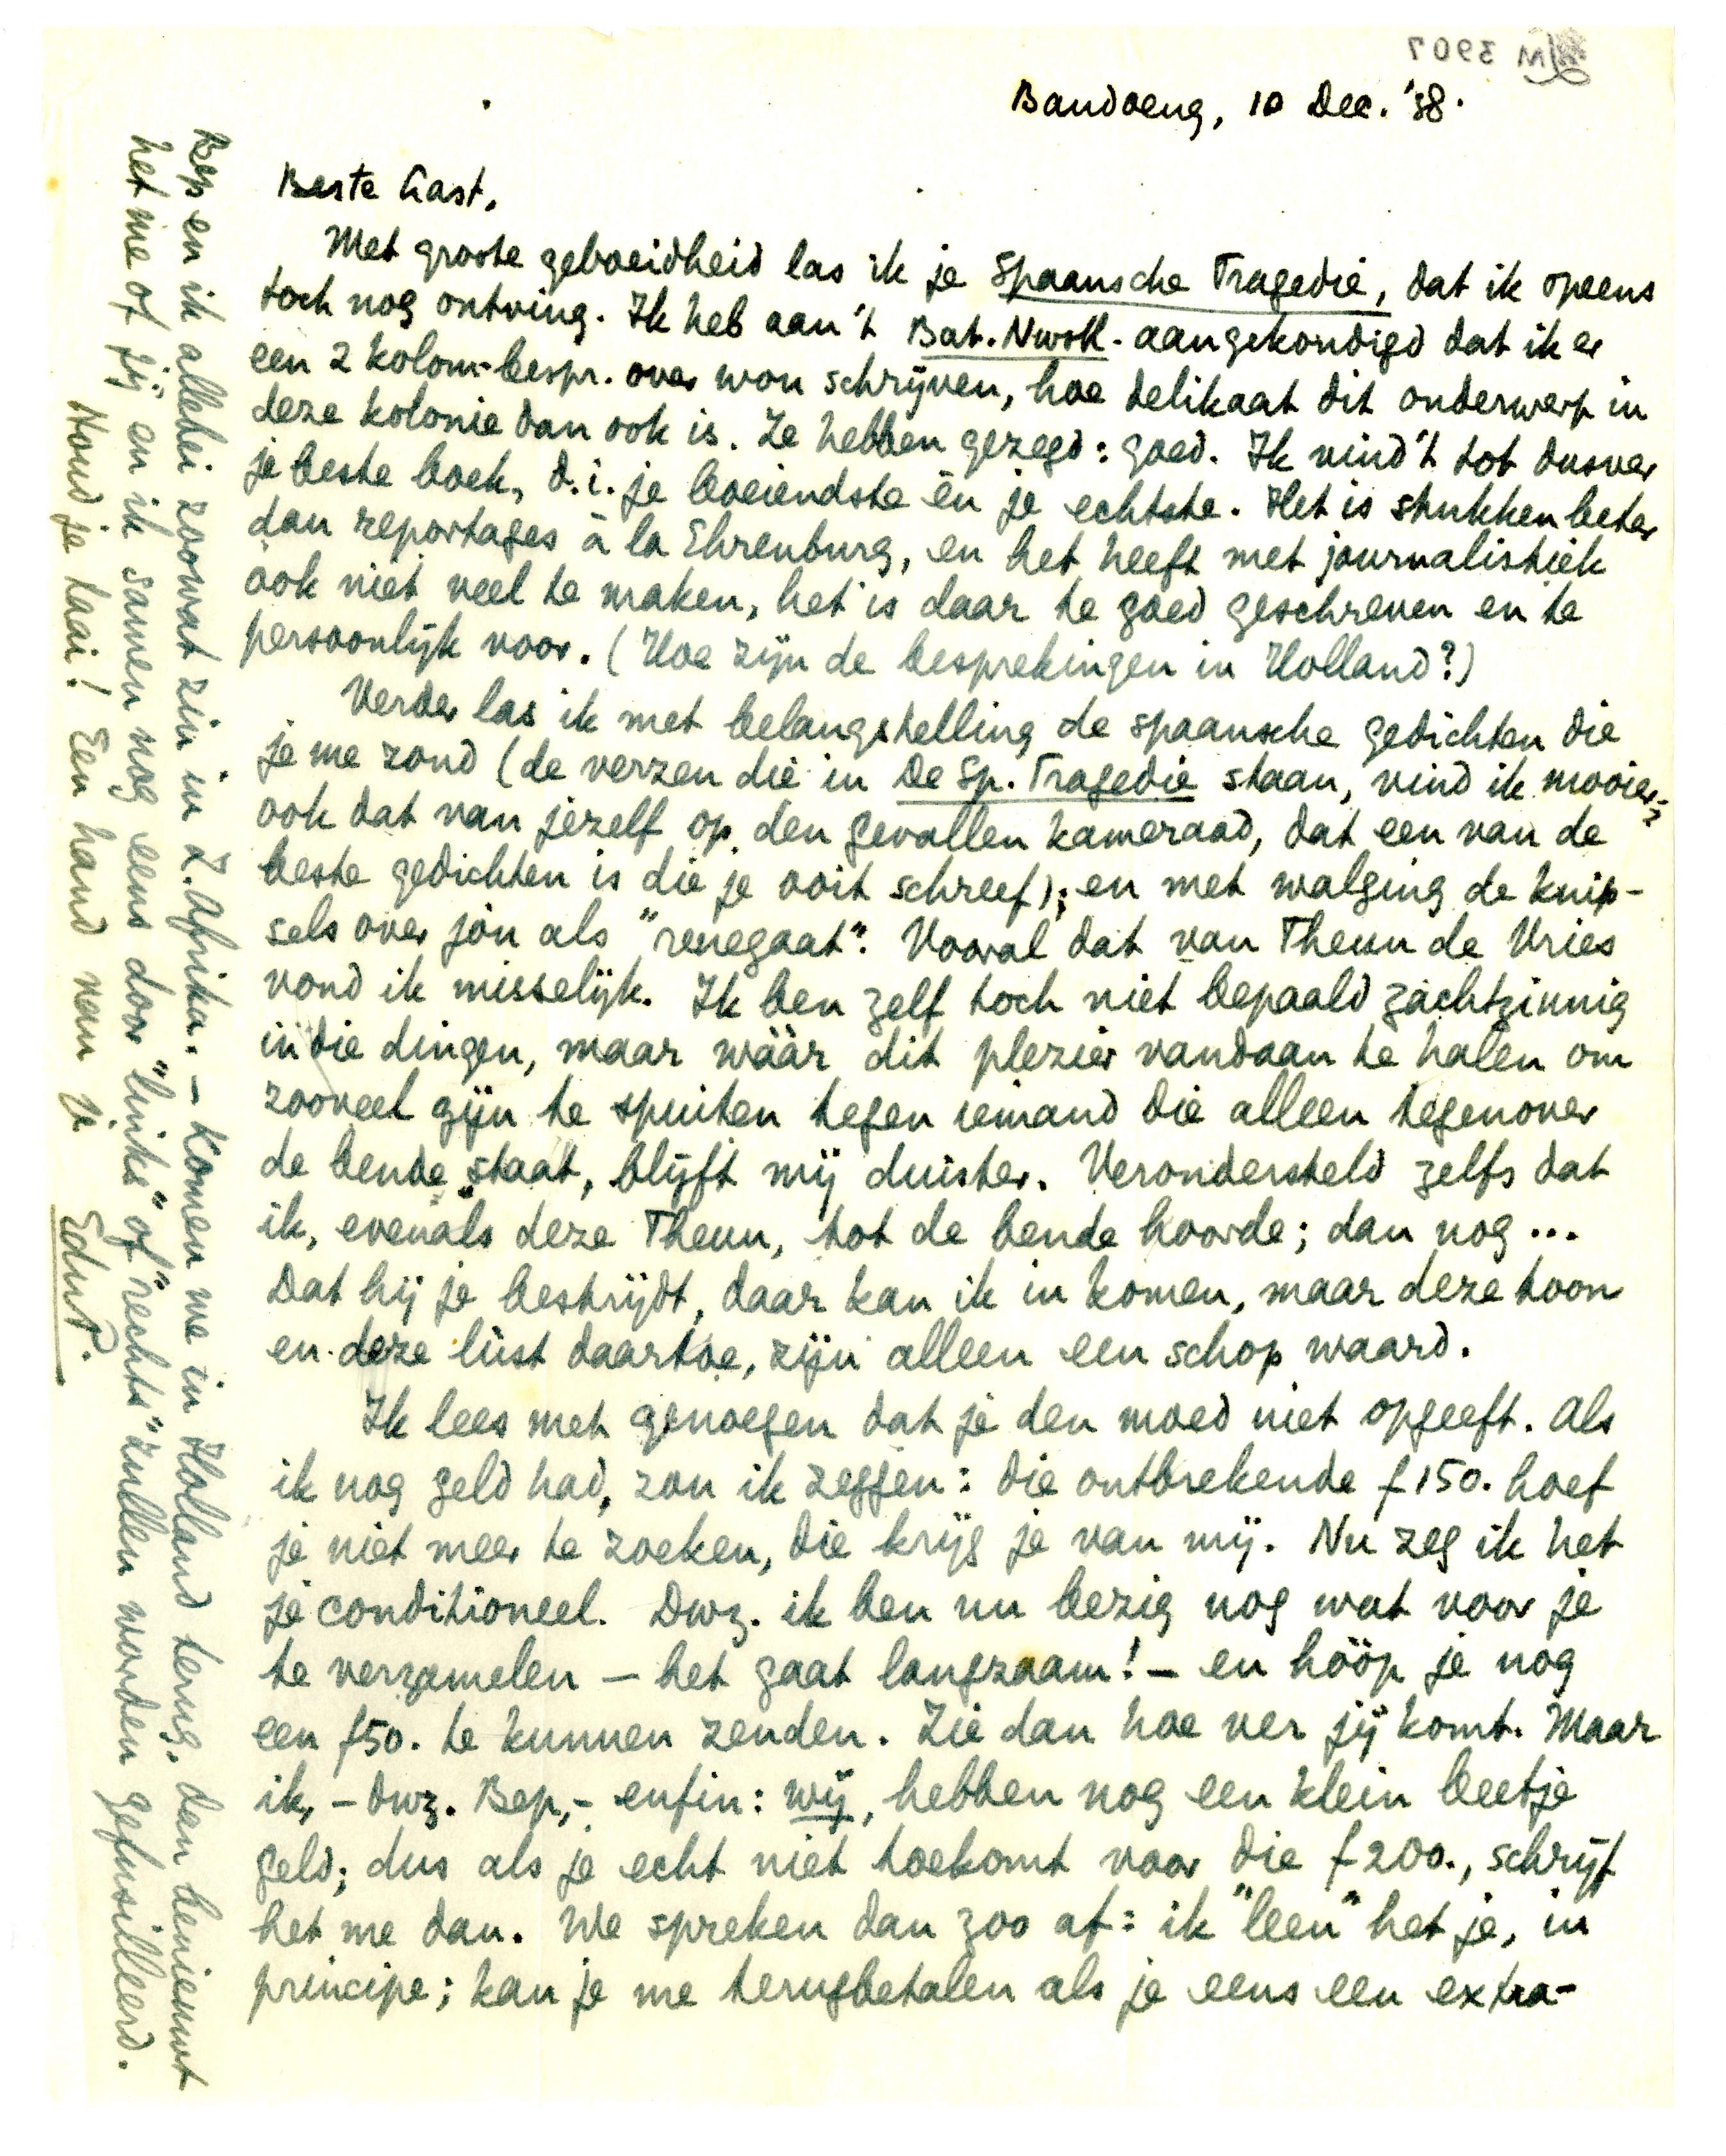 LM 3907
Bandoeng, 10 Dec. '38.
Beste Gast,
Met groote geboeidheid las ik je Spaansche Tragedie, dat ik opeens
toch nog ontving. Ik heb aan 't Bat. Nwsbl. aangekondigd dat ik er
een 2 kolom-bespr. over wou schrijven, hoe delikaat dit onderwerp in
deze kolonie dan ook is. Ze hebben gezegd: goed. Ik vind 't tot dusver
je beste boek, d.i. je boeiendste èn je echtste. Het is stukken beter
dan reportages à la Ehrenburg, en het heeft met journalistiek
óók niet veel te maken, het is daar te goed geschreven en te
persoonlijk voor. (Hoe zijn de besprekingen in Holland?)
Verder las ik met belangstelling de spaansche gedichten die
je me zond (de verzen die in De Sp. Tragedie staan, vind ik mooier;
ook dat van jezelf op den gevallen kameraad, dat een van de
beste gedichten is die je ooit schreef); en met walging de knip-
sels over jou als "renegaat". Vooral dat van Theun de Vries
vond ik misselijk. Ik ben zelf toch niet bepaald zachtzinnig
in die dingen, maar wáár dit plezier vandaan te halen om
zooveel gijn te spuiten tegen iemand die alleen tegenover
de bende staat, blijft mij duister. Verondersteld zelfs dat
ik, evenals deze Theun, tot de bende hoorde; dan nog...
Dat hij je bestrijdt, daar kan ik in komen, maar deze toon
en deze lúst daartoe, zijn alleen een schop waard.
Ik lees met genoegen dat je den moed niet opgeeft. Als
ik nog geld had, zou ik zeggen: die ontbrekende f 150. hoef
je niet meer te zoeken, die krijg je van mij. Nu zeg ik het
je conditioneel. Dwz. ik ben nu bezig nog wat voor je
te verzamelen – het gaat langzaam! – en hóóp je nog
een f 50. te kunnen zenden. Zie dan hoe ver jij komt. Maar
ik, – dwz. Bep, – enfin: wij, hebben nog een klein beetje
geld; dus als je echt niet toekomt voor die f 200., schrijf
het me dan. We spreken dan zoo af: ik "leen" het je, in
principe; kan je me terugbetalen als je eens een extra-
Bep en ik allebei zoowat zin in Z. Afrika. – Komen we in Holland terug, dan benieuwt
het me of jij en ik samen nog eens door "links" of "rechts" zullen worden gefusilleerd.
Houd je taai! Een hand van je
EduP.